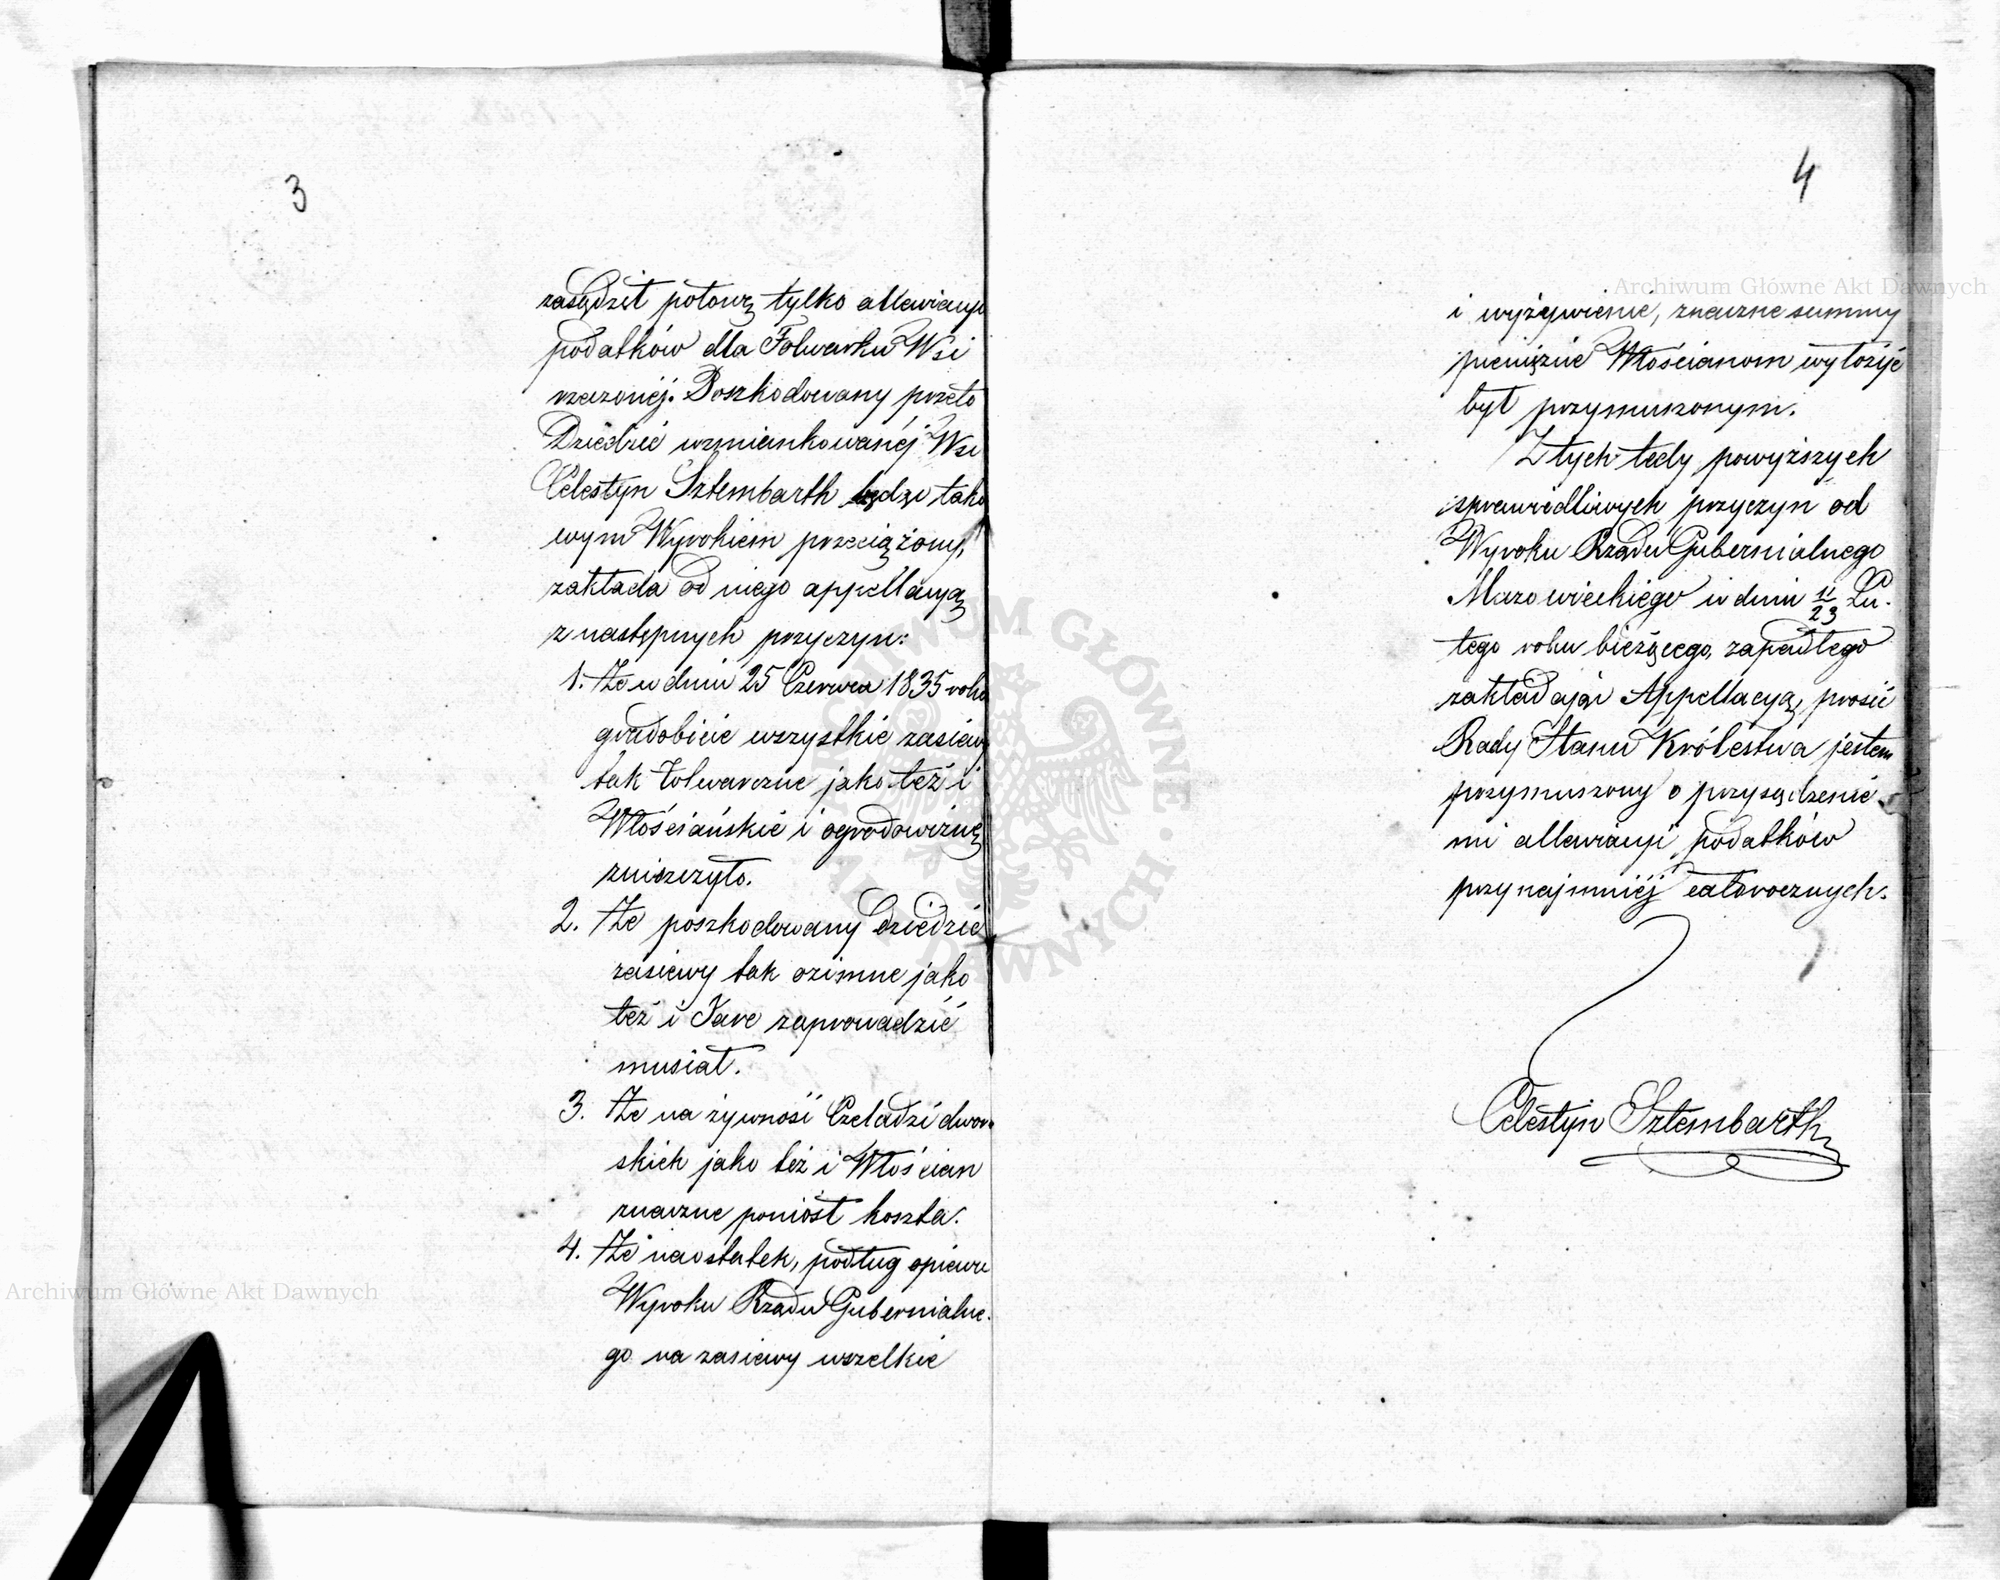 3
zasądził połowę tylko allewiacyi
podatków dla Folwarku Wsi
rzeczonéj. Poszkodowany przeto
Dziedzic wzmiankowanéj Wsi
Celestyn Sztembarth będąc tako
wym Wyrokiem przeciążony,
zakłada od niego appellacyą
z następnych przyczyn:
1. Że w dniu 25 Czerwca 1835 roku
gradobicie wszystkie zasiewy
tak folwarczne jako też i
Włościańskie i ogrodowiznę
zniszczyło.
2. Że poszkodowany Dziedzic
zasiewy tak ozimne jako
też i Jare zaprowadzić
musiał.
3. Że na żywność Czeladzi dwor
skiéh jako też i Włościan
znaczne poniósł koszta.
4. Że naostatek, podług opiewu
Wyroku Rządu Gubernialne-
go na zasiewy wszelkie
4
i wyżywienie, znaczne summy
pieniężne Włościanom wyłożyć
był przymuszonym.
Z tych tedy powyższych
sprawiedliwych przyczyn od
Wyroku Rządu Gubernialnego
Mazowieckiego w dniu 11/23 Lu-
tego roku bieżącego, zapadłego
zakładając Appellacyą, prosić
Rady Stanu Królestwa jestem
przymuszony o przysądzenie
mi allewiacyi podatków
przynajmniéj całorocznych.
Celestyn Sztembarth
Archiwum Główne Akt Dawnych
Archiwum Główne Akt Dawnych
ARCHIWUM GŁÓWNE AKT DAWNYCH